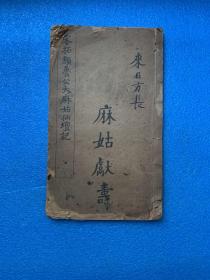 來日方長
麻姑獻壽
宋拓顏魯公大麻姑仙壇記